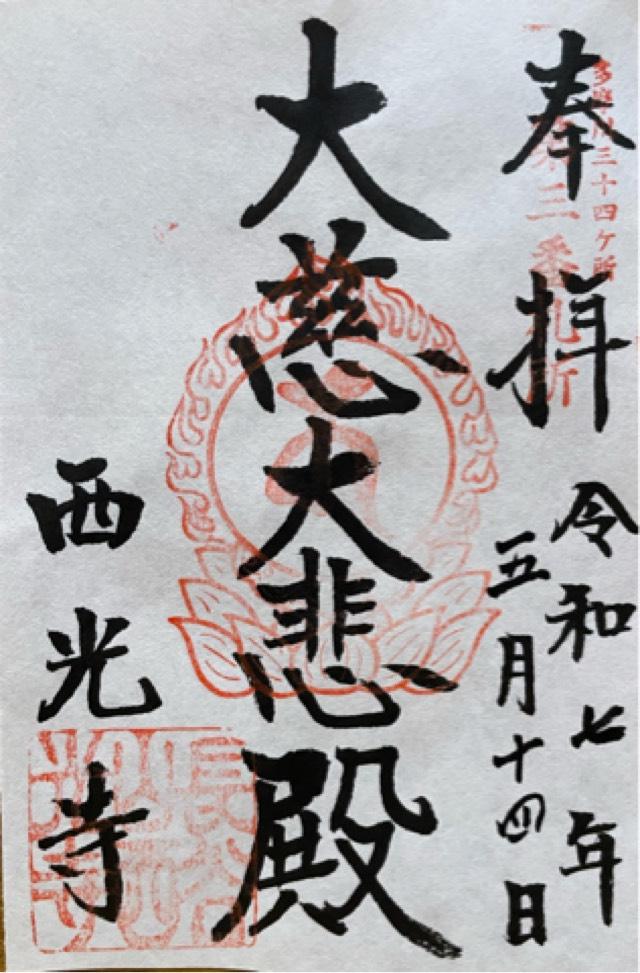 多摩川三十四ヶ所
第三番札所
奉拝
令和七年
五月十四日
大慈大悲殿
西光寺